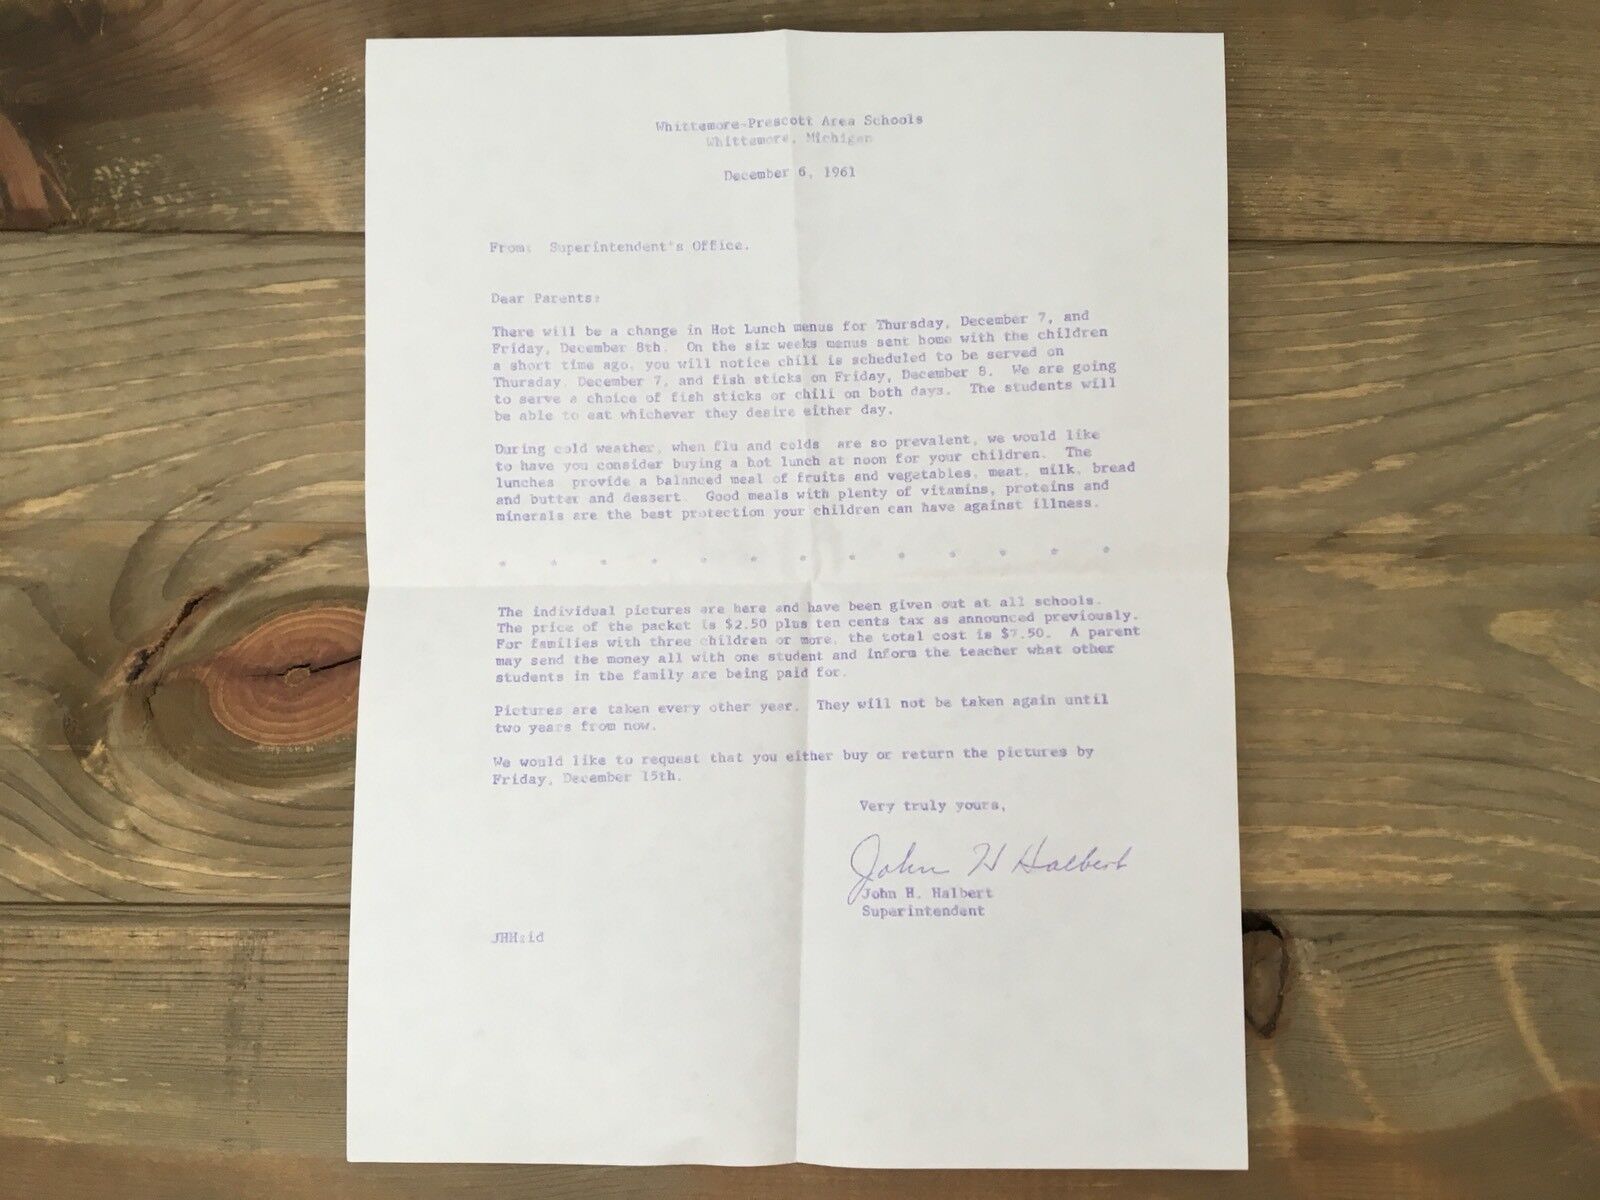 Whittemore-Prescott Area Schools
Whittemore, Michigan
December 6, 1961
From: Superintendent's Office.
Dear Parents:
There will be a change in Hot Lunch menus for Thursday, December 7, and
Friday, December 8th. On the six weeks menus sent home with the children
a short time ago, you will notice chili is scheduled to be served on
Thursday, December 7, and fish sticks on Friday, December 8. We are going
to serve a choice of fish sticks or chili on both days. The students will
be able to eat whichever they desire either day.
During cold weather, when flu and colds are so prevalent, we would like
to have you consider buying a hot lunch at noon for your children. The
lunches provide a balanced meal of fruits and vegetables, meat, milk, bread
and butter and dessert. Good meals with plenty of vitamins, proteins and
minerals are the best protection your children can have against illness.
* * * * * * * * * * * * *
The individual pictures are here and have been given out at all schools.
The price of the packet is $2.50 plus ten cents tax as announced previously.
For families with three children or more, the total cost is $7.50. A parent
may send the money all with one student and inform the teacher what other
students in the family are being paid for.
Pictures are taken every other year. They will not be taken again until
two years from now.
We would like to request that you either buy or return the pictures by
Friday, December 15th.
Very truly yours,
John H Halbert
John H. Halbert
Superintendent
JHH:id